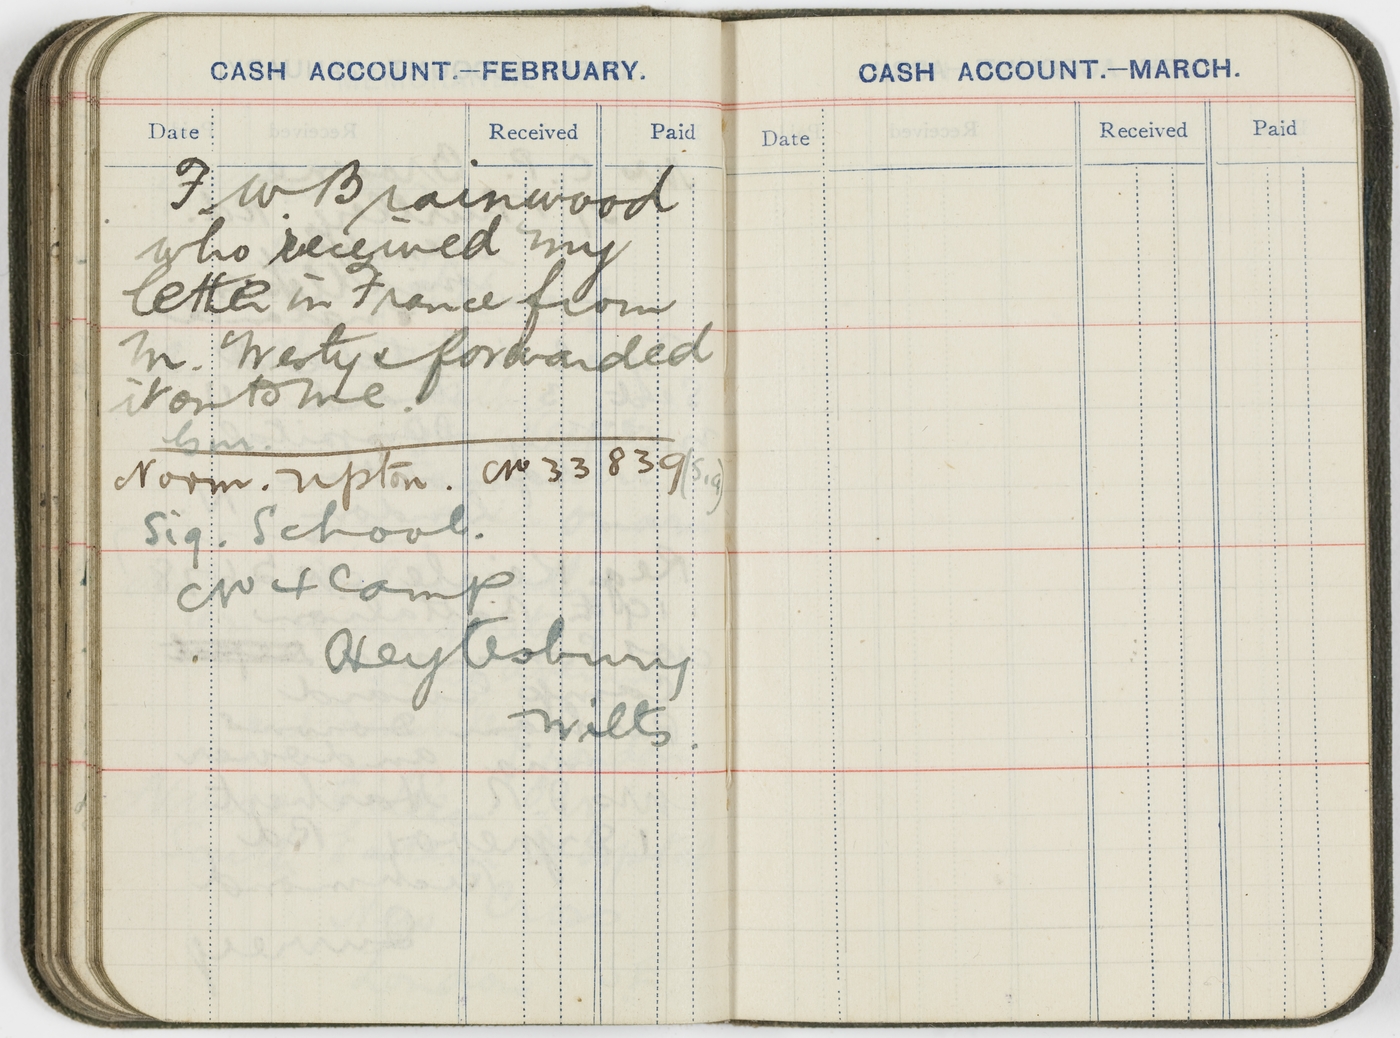 CASH ACCOUNT.—FEBRUARY.
Date Received Paid
F. W. Brainwood
who received my
letter in France from
M. Westy & forwarded
it on to me.
Norm. Upton. No 33839 (Sig)
Sig. School.
No 4 Camp
Heytesbury
Wilts.
CASH ACCOUNT.—MARCH.
Date Received Paid